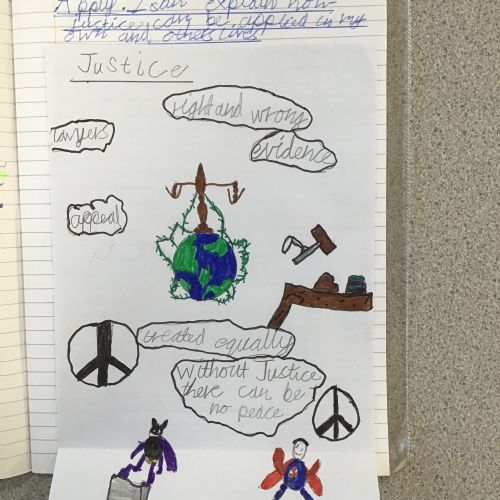 Apply: I can explain how
justice can be applied in my
own and others lives!
Justice
right and wrong
lawyers
evidence
appeal
treated equally
Without Justice
there can be
no peace